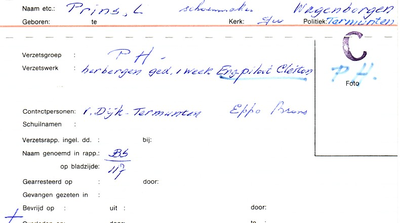 Naam etc.: Prins, L schoenmaker Wagenborgen
Geboren: te Kerk: Politiek: Termunten
Verzetsgroep : P H.
Verzetswerk : herbergen ged. 1 week
C
P. H.
Foto
Contractpersonen: v. Dijk - Termunten Eppo
Schuilnaam :
Verzetsrapp. ingel. dd. : bij:
Naam genoemd in rapp.: BS
op bladzijde: 117
Gearresteerd op : door:
Gevangen gezeten in :
Bevrijd op : uit : door:
te :